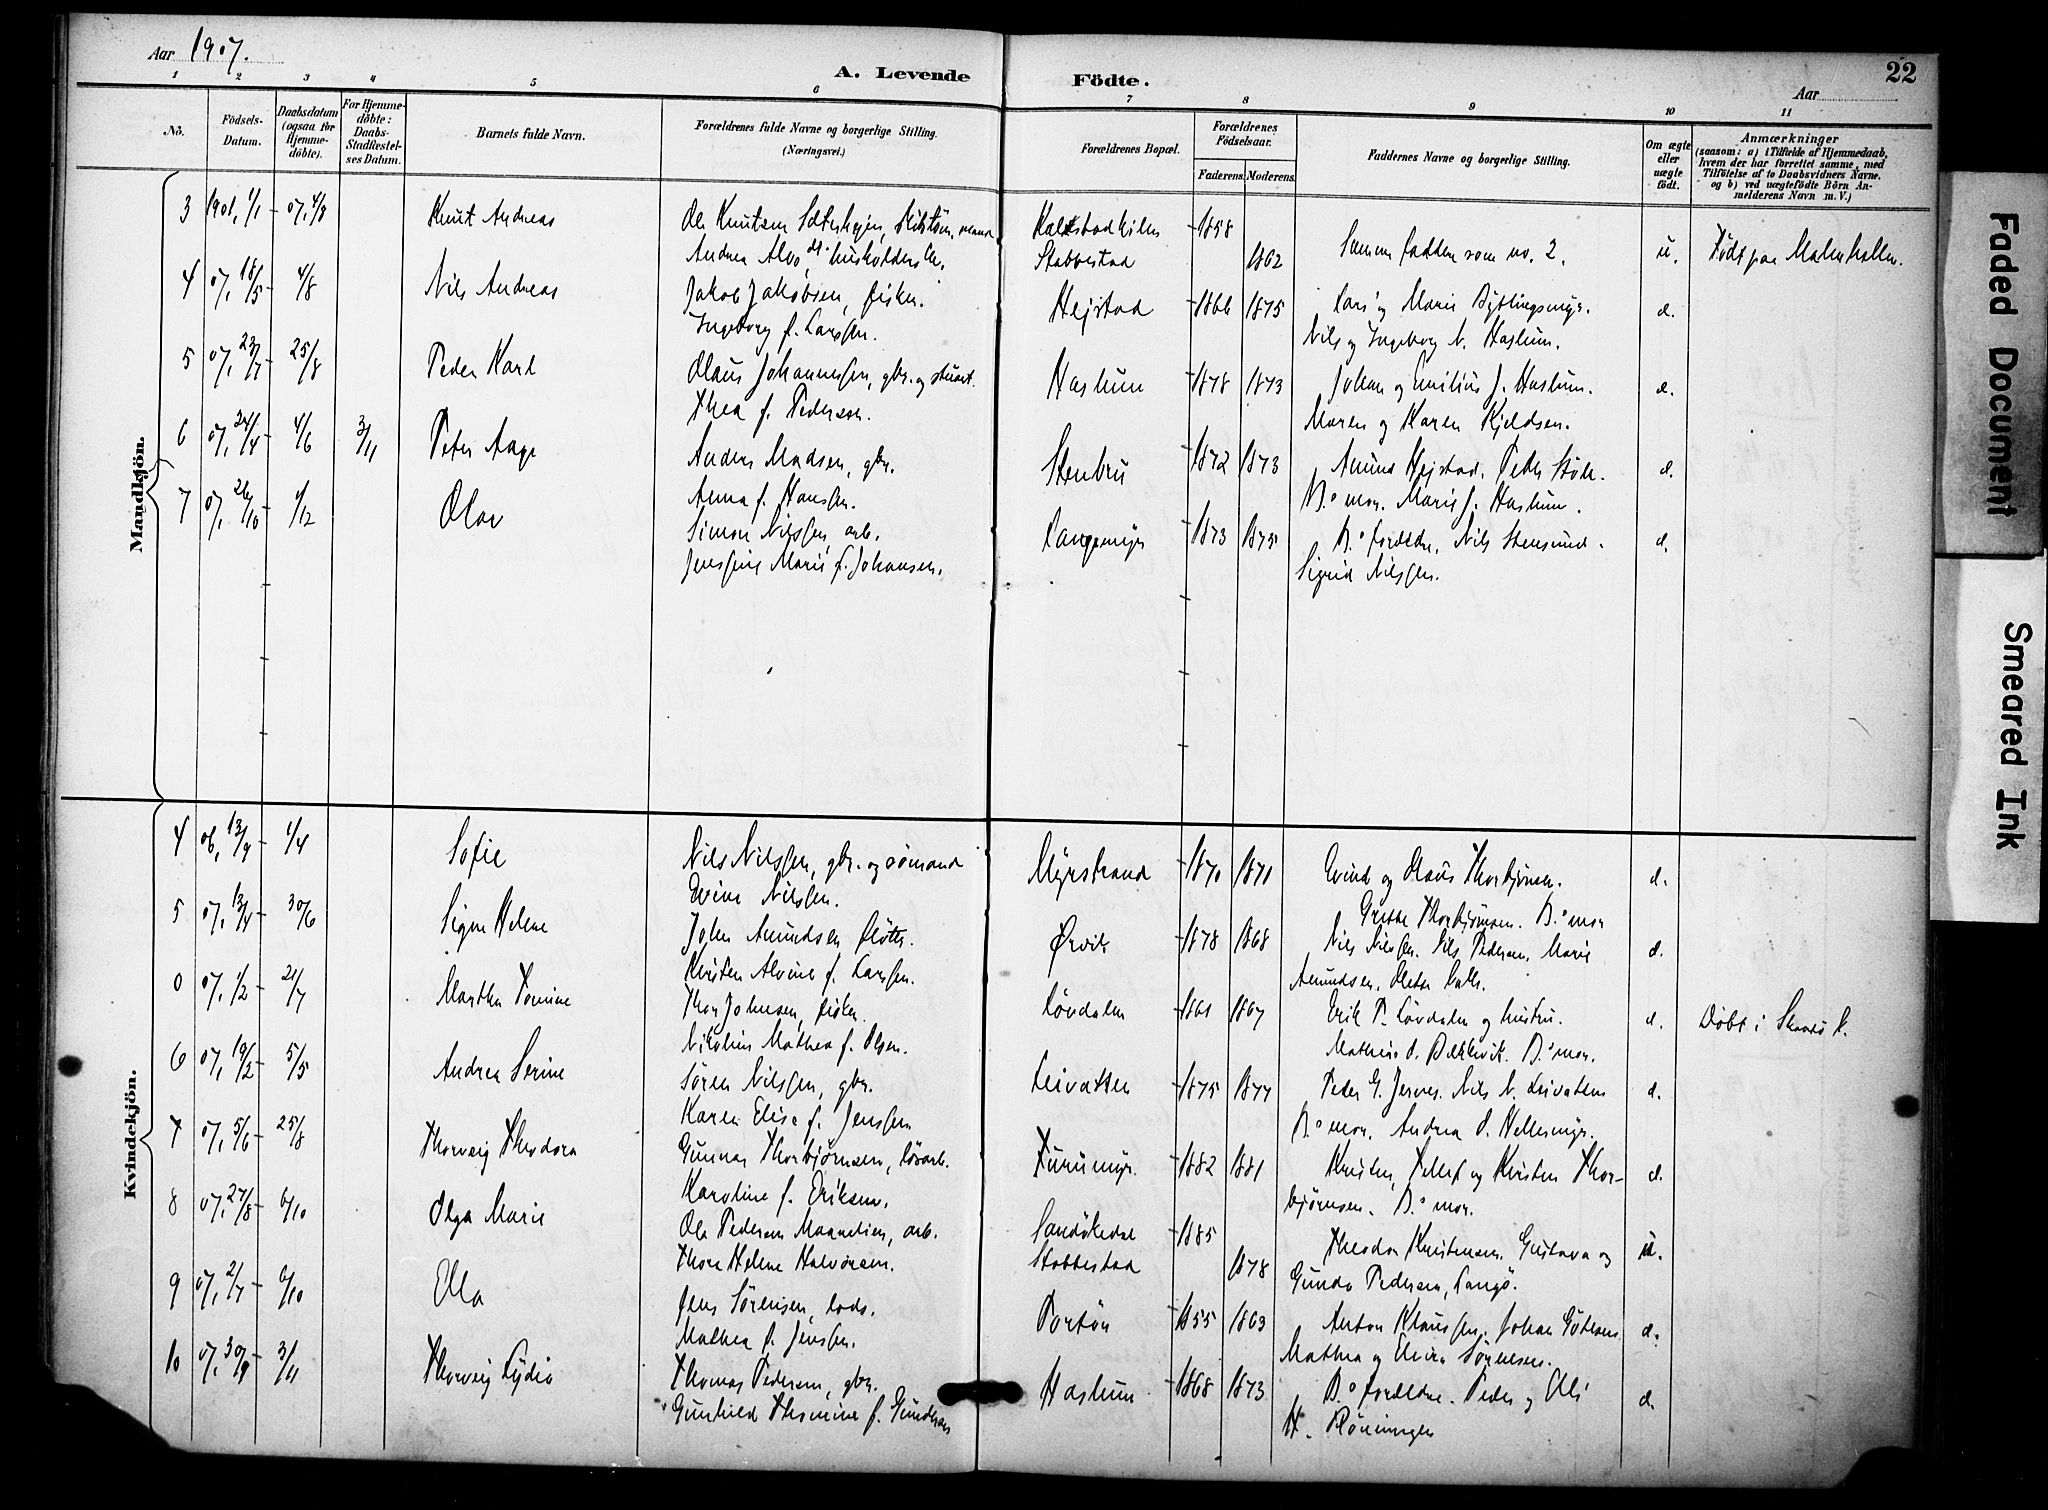 Aar 1907.
A. Levende Födte.
22
Aar
1 2 3 4 5 6 7 8 9 10 11
No.
Födsels-Datum.
Daabsdatum (ogsaa for Hjemme-döbte).
For Hjemme-döbte: Daabs-Stadfestel-ses Datum.
Barnets fulde Navn.
Forældrenes fulde Navne og borgerlige Stilling.
(Næringsvei.)
Forældrenes Bopæl.
Forældrenes Födselsaar.
Faderens. Moderens.
Faddernes Navne og borgerlige Stilling.
Om ægte eller uægte födt.
Anmærkninger
(saasom: a) i Tilfælde af Hjemmedaab, hvem der har forrettet samme, med Tilföielse af to Daabsvidners Navne. og b) ved uægtefödte Börn Anmelderens Navn m. V.)
Mandkjön.
3 1901, 1/1 - 07, 4/8 Knut Andreas Ole Knutsen 1858
Andrea Stabbestad 1862 Samme faddere som no. 2. u. Født paa
4 07, 18/5 - 4/8 Nils Andreas Jakob Jakobsen, fisker. Hejstad 1866 1875 Lars og Marie d.
Ingeborg f. Larssen. Nils og Ingeborg N. Haslum.
5 07, 23/7 - 25/8 Peder Karl Olaus Johannessen, gbr. og Haslum 1878 1873 Johan og Emilius J. Haslum. d.
Thea f. Pedersen. Maren og Karen Kjeldsen.
6 07, 24/4 4/6 3/11 Peter Aage Anders Madsen, gbr. Stenbru 1872 1873 Amund Hejstad. Peder d.
Anna f. Hanssen. B.s mor. Marie J. Haslum.
7 07, 26/10 1/12 Olav Simon Nilssen, arb. Langemyr 1873 1875 B.s forældre. Nils Stensund. d.
Jenssine Marie f. Johansen. Sigrid Nilssen.
Kvindekjön.
4 06, 13/9 - 1/4 Sofie Nils Nilssen, gbr. og sømand Myrstrand 1870 1871 Evind og Olaus Thorbjørnsen. d.
Nilssen. Grethe Thorbjørnsen. B.s mor
5 07, 13/4 - 30/6 Signe Helene John Amundsen Ørvik 1878 1868 Nils Nilssen. Nils Pedersen. Marie d.
Kirsten Alvine f. Larssen. Amundsen.
0 07, 1/2 - 21/7 Martha Tomine Thor Johnsen, fisker. Løvdalen 1861 1867 Erik P. Løvdalen og hustru. d. Døbt i
Mathea f. Olsen. B.s mor.
6 07, 19/2 - 5/5 Andrea Serine Søren Nilssen, gbr. Leivatten 1875 1877 Peder G. Nils N. Leivatten d.
Karen Elise f. Jenssen B.s mor. Andrea O. Hellesmyr.
7 07, 5/6 - 25/8 Thorveig Theodora Gunnar Thorbjørnsen, Furumyr. 1882 1881 Kirsten, Tellef og Kirsten Thor- d.
Karoline f. Eriksen. bjørnsen. B.s mor.
8 07, 27/8 - 6/10 Olga Marie Ole Pedersen arb. Sandøkedal 1885 Theodor Kristensen. Gustava og u.
Thora Helene Halvorsen. Stabbestad 1878 Gunda Pedersen, Langø.
9 07, 2/7 - 6/10 Ella Jens Sørensen, lods. Portør 1855 1863 Anton Klaussen. Johan d.
Mathea f. Jenssen. Mathea og Elvira Sørensen.
10 07, 30/9 - 3/11 Thorveig Lydia Thomas Pedersen, gbr. Haslum 1868 1873 B.s forældre. Peder og d.
Gunhild Thomine f. Gundersen H. Rønningen
Faded Document
Smeared Ink